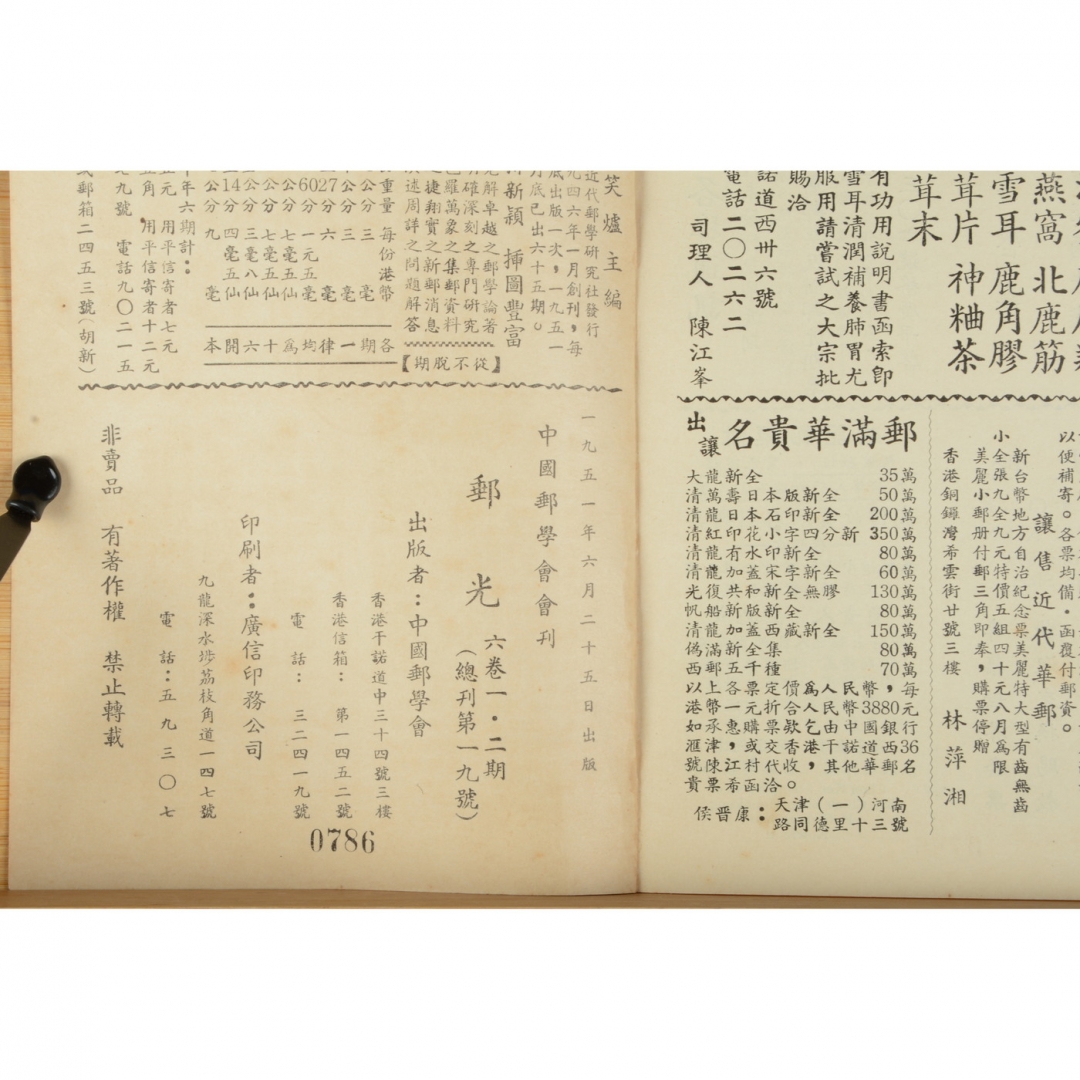 有功用說明書函索即
雪耳清潤補養肺胃尤
服用請嘗試之大宗批
賜洽
諾道西卅六號
電話二〇二六二
司理人 陳江峯
燕窩 北鹿筋
雪耳 鹿角膠
茸片 神粬茶
茸末
以便補寄。各票均備・函覆付郵資。
讓售近代華郵
新台幣地方自治紀念票美麗特大型有齒無齒
小全張九全九元特價五組四十元八月為限
美麗小郵册付郵三角即奉,購票停贈
香港銅鑼灣希雲街廿號三樓 林萍湘
出讓
名貴華滿郵
大龍新全 35萬
清萬壽日本版新全 50萬
清龍日本石印新全 200萬
清紅印花小字四分新 350萬
清龍有水印新全 80萬
清龍加蓋宋字新全 60萬
光復共和新無膠 130萬
帆船新版新全 80萬
清龍加蓋西藏新全 150萬
偽滿新全集 80萬
西郵五千種 70萬
以上各票定價為人民幣,每
港幣一元折合人民幣3880元
如承惠購票欵乞由中國銀行
滙津,江或交香港干諾道西36
號陳希村代收。其他華郵名
貴票函洽。
侯晉康:天津(一)河南
路同德里十三號
笑爐主編
近代郵學研究社發行
九四六年一月創刊,每
底出版一次,一九五一
月底已出六十五期。
新穎 插圖豐富
見解卓越之郵學論著
明確深刻之專門研究
包羅萬象之集郵資料
迅捷翔實之新郵消息
演述周詳之問題解答
【從不脫期】
重量 每份港幣
公分 三毫
公分 三毫
27公分 六毫
60公分 一元五毫
公分 七毫五仙
公分 七毫五仙
公分 三毫八仙
14公分 四毫五仙
公分 九毫
各期一律均為十六開本
年六期計:
元 用平信寄者七元
五角 用平信寄者十二元
九號 電話九〇二一五
郵箱二四五三號(胡新)
一九五一年六月二十五日出版
中國郵學會會刊
郵光
六卷一・二期
(總刊第一九號)
出版者:中國郵學會
香港干諾道中三十四號三樓
香港信箱:第一四五二號
電話:三二四一九號
印刷者:廣信印務公司
九龍深水埗荔枝角道一四七號
電話:五九三〇七
非賣品 有著作權 禁止轉載
0786